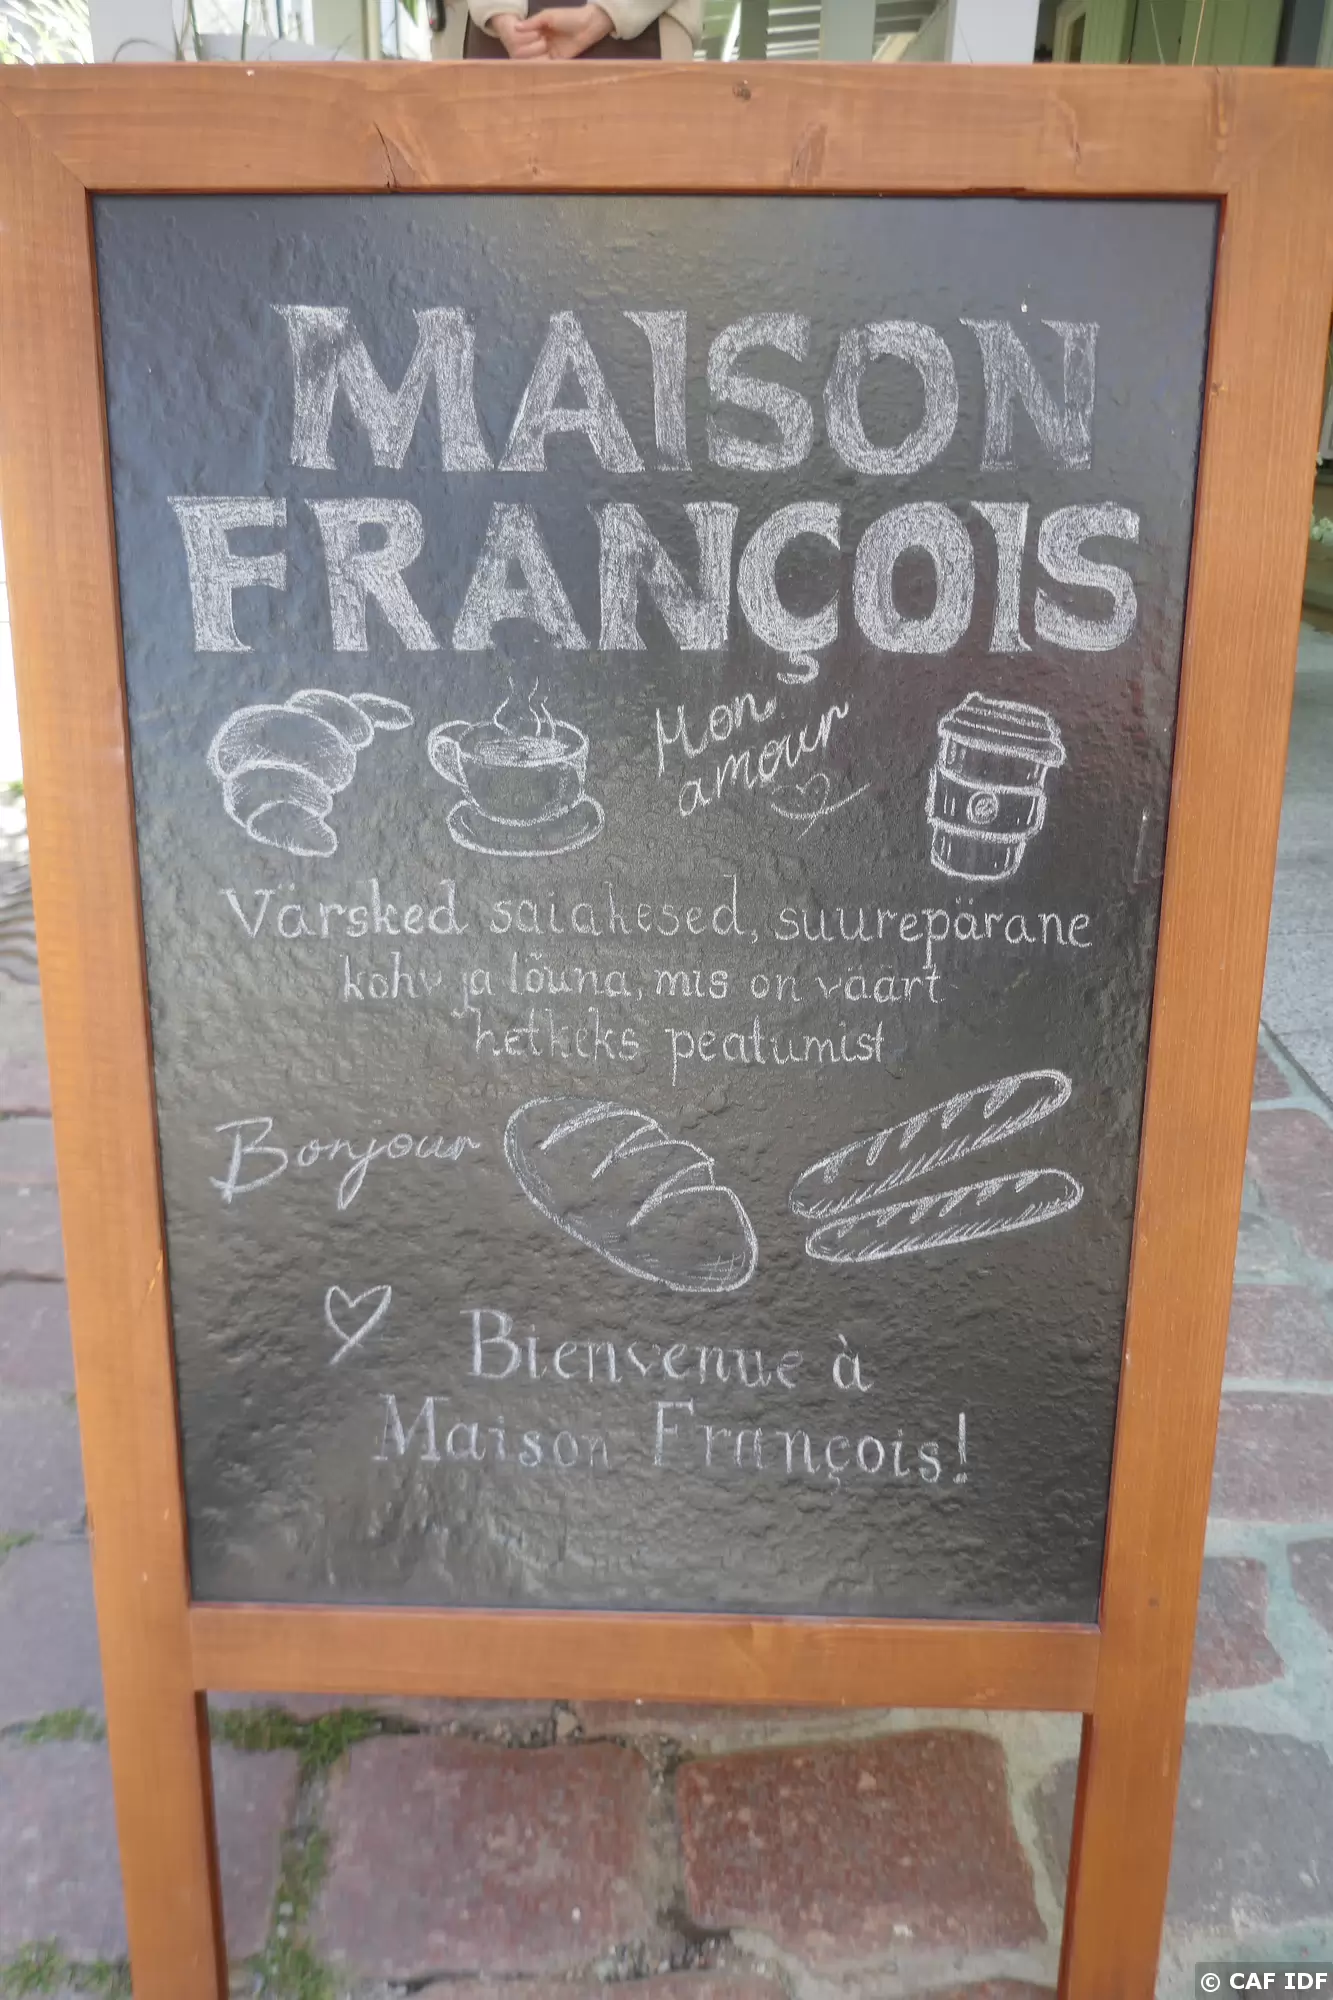 MAISON
FRANÇOIS
Mon
amour
Värsked saiakesed, suurepärane
kohv ja lõuna, mis on väärt
hetkeks peatumist
Bonjour
Bienvenue à
Maison François!
© CAF IDF